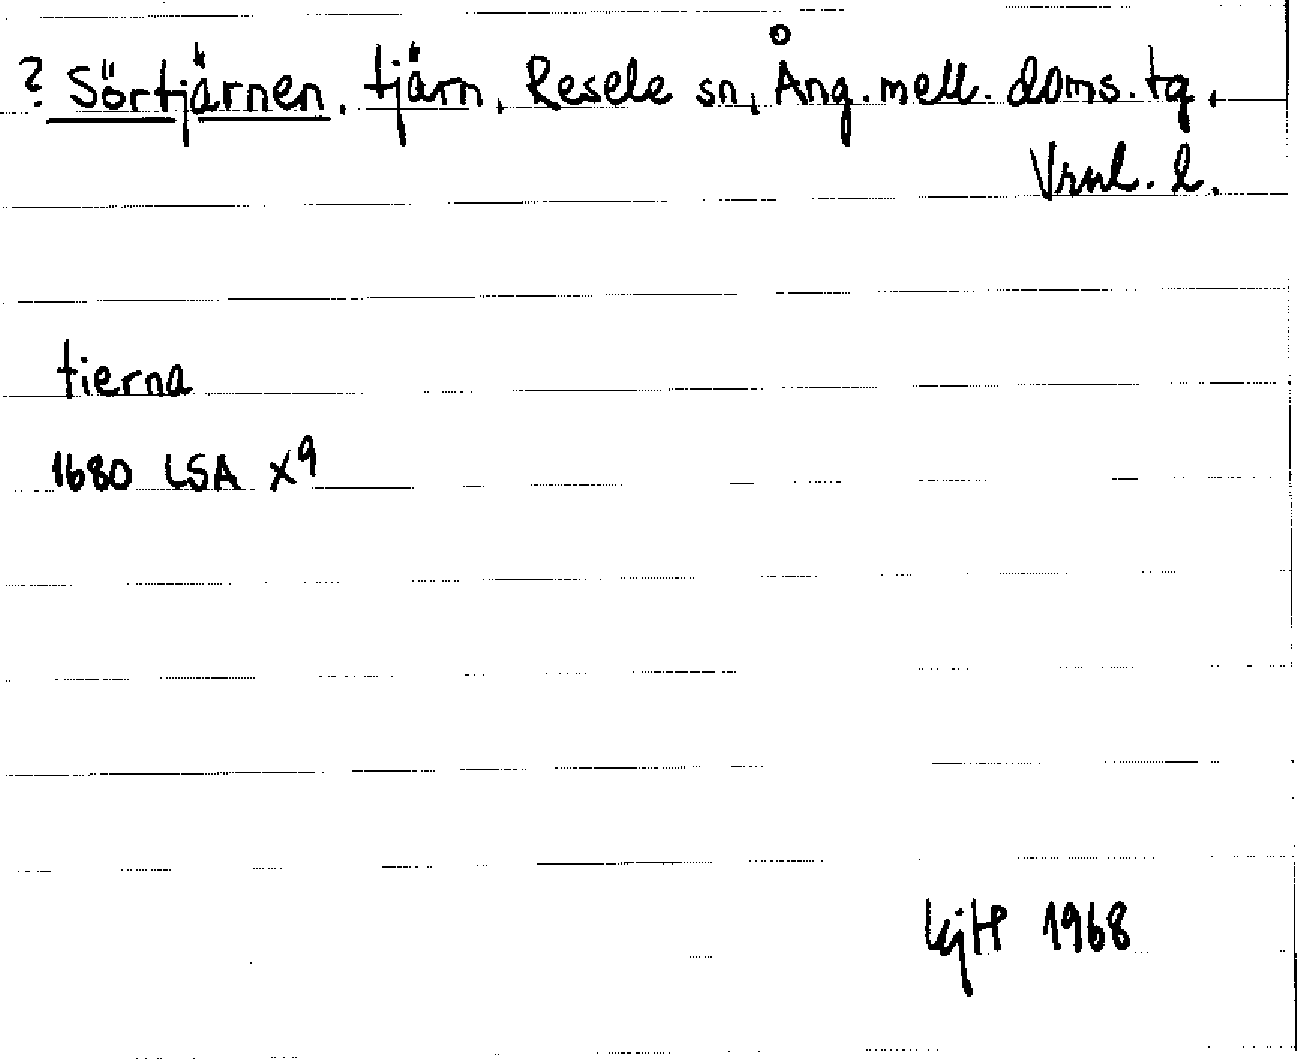 ? Sörtjärnen, tjärn, Resele sn, Ång. mell. doms. tg,
Vrnl. l.
tierna
1680 LSA X9
1968